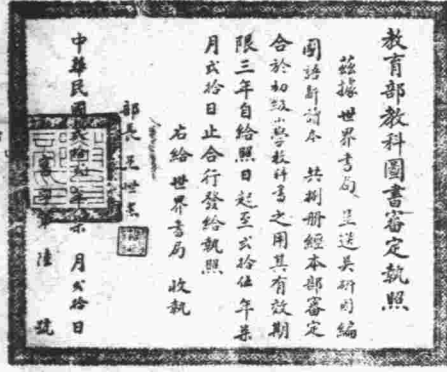 教育部教科圖書審定執照
茲據世界書局呈送吳研因編
國語新讀本 共捌册經本部審定
合於初級小學教科書之用其有效期
限三年自給照日起至貳拾伍年柒
月貳拾日止合行發給執照
右給世界書局 收執
部長王世杰
中華民國 年柒月貳拾日
字第陸號